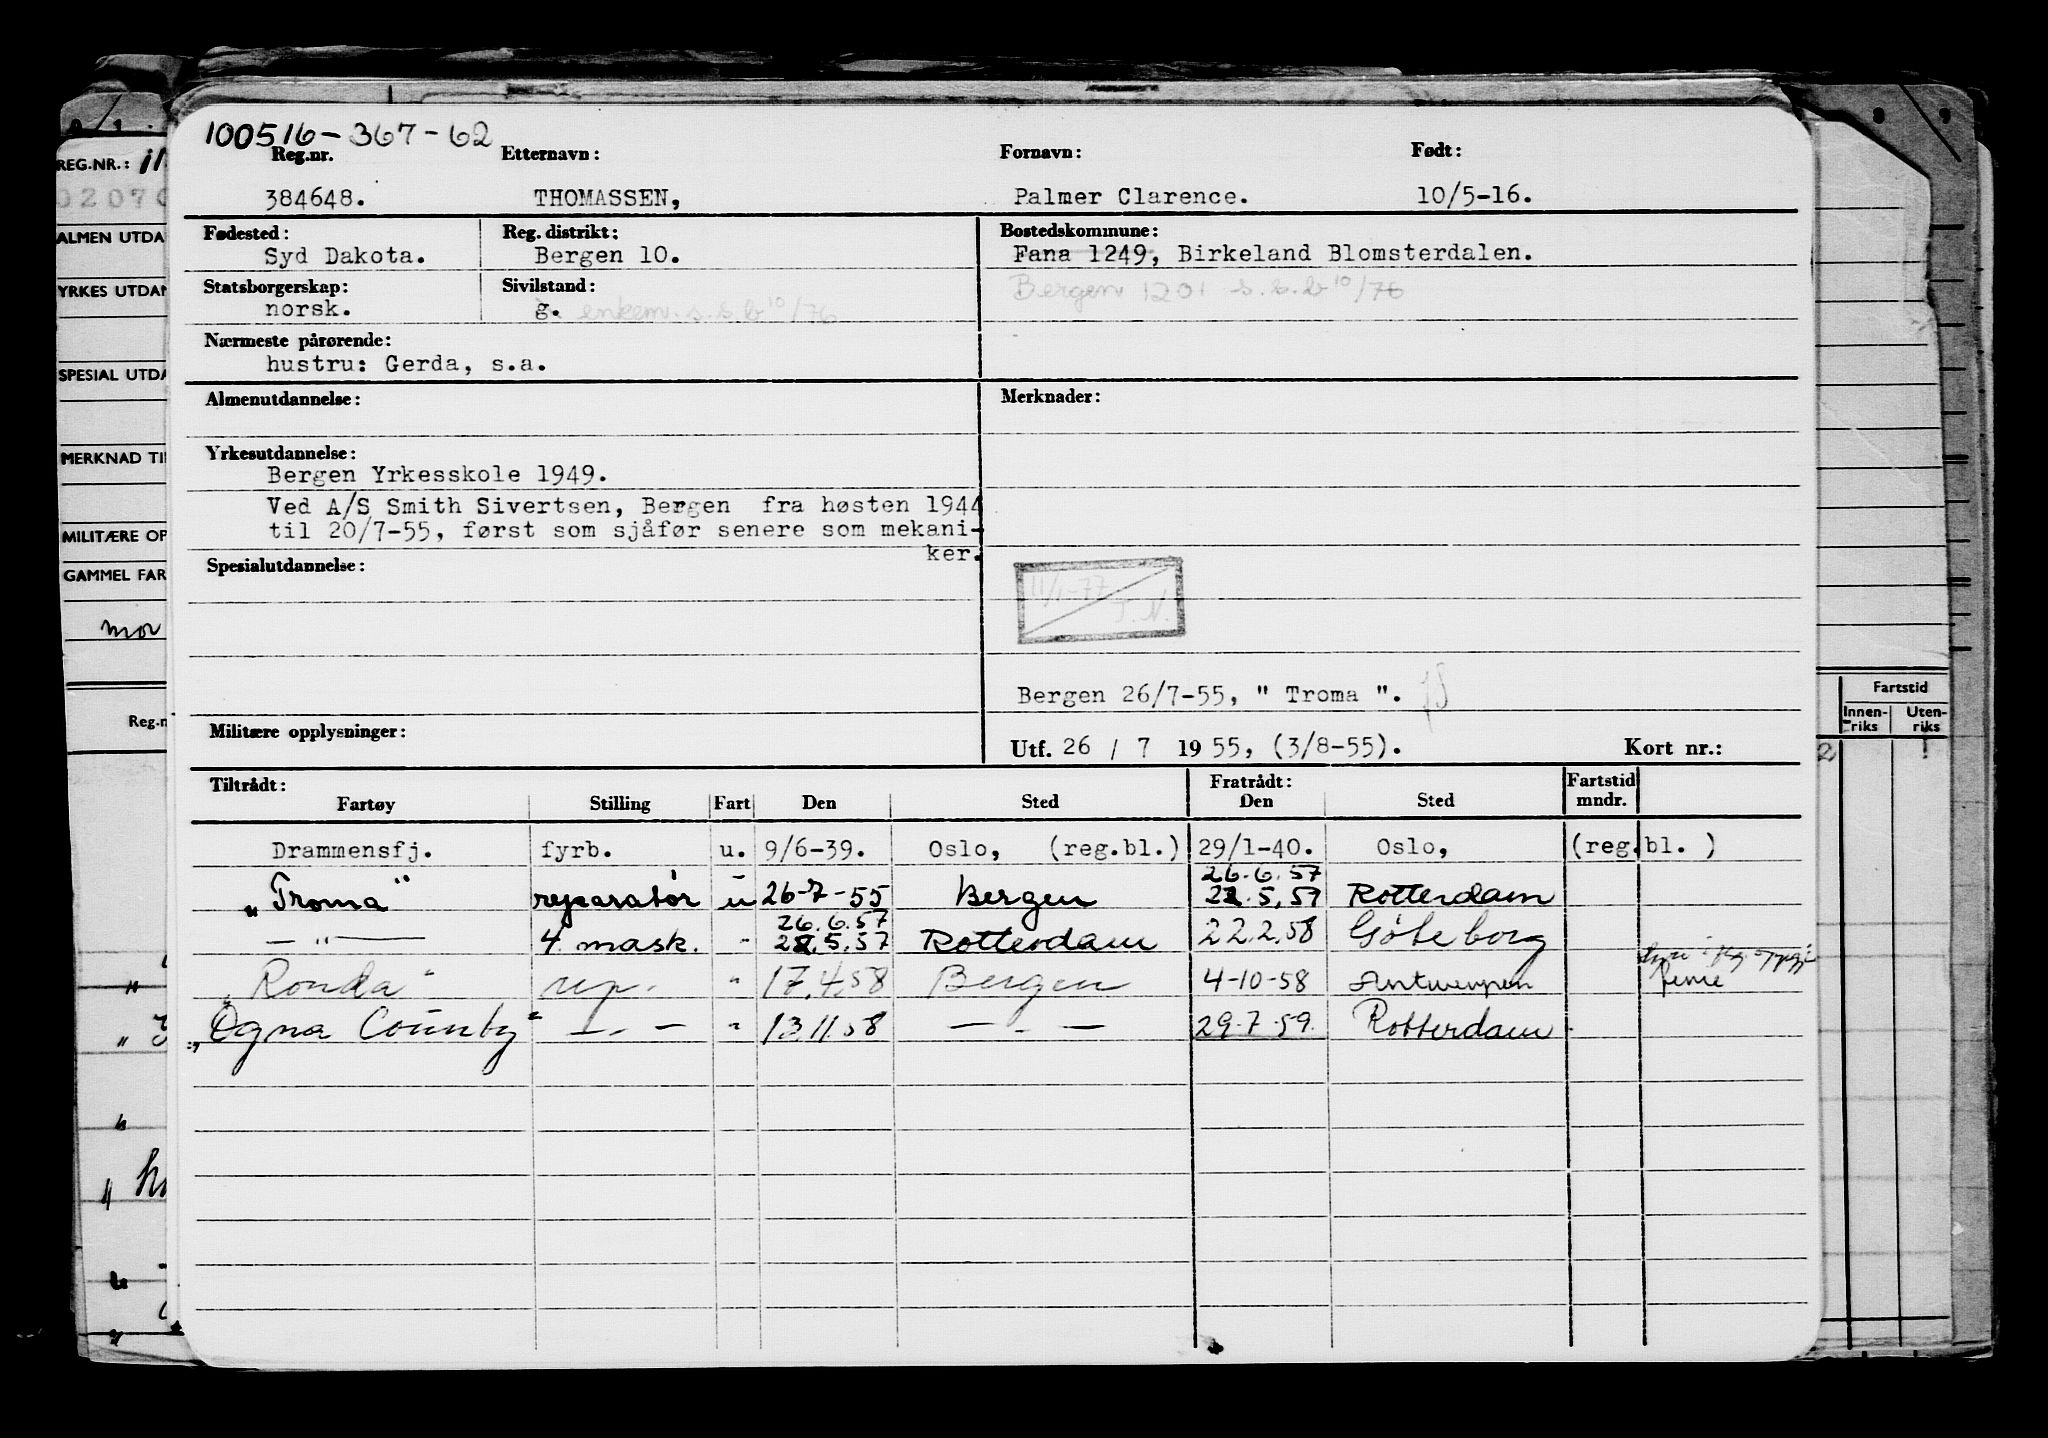 100516-367-62
Reg.nr. Etternavn: Fornavn: Født:
384648. THOMASSEN, Palmer Clarence. 10/5-16.
Fødested: Reg. distrikt: Bostedskommune:
Syd Dakota. Bergen 10. Fana 1249, Birkeland Blomsterdalen.
Statsborgerskap: Sivilstand: Bergen 1201 s.s.b 10/76
norsk. g. enkem. s.s b 10/76
Nærmeste pårørende:
hustru: Gerda, s.a.
Almenutdannelse: Merknader:
Yrkesutdannelse:
Bergen Yrkesskole 1949.
Ved A/S Smith Sivertsen, Bergen fra høsten 1944
til 20/7-55, først som sjåfør senere som mekani-
ker.
Spesialutdannelse:
11/1-77
T.N.
Bergen 26/7-55, " Troma ".
Militære opplysninger: Utf. 26 / 7 1955, (3/8-55). Kort nr.:
Tiltrådt: Fratrådt: Fartstid
Fartøy Stilling Fart Den Sted Den Sted mndr.
Drammensfj. fyrb. u. 9/6-39. Oslo, (reg.bl.) 29/1-40. Oslo, (reg.bl. )
26.6.57
"Troma" reparatør u 26-7-55 Bergen 22.5.57 Rotterdam
26.6.57
— " — 4 mask. " 22.5.57 Rotterdam 22.2.58 Göteborg
"Ronda" rep. " 17.4.58 Bergen 4-10-58 Antwerpen ferie
"Ogna County" —"— " 13.11.58 —"— 29.7.59. Rotterdam
REG.NR.:
ALMEN UTDA
YRKES UTDAN
SPESIAL UTDA
MERKNAD TI
MILITÆRE OP
GAMMEL FAR
mor
Reg.n
Fartstid
Innen-
riks
Uten-
riks